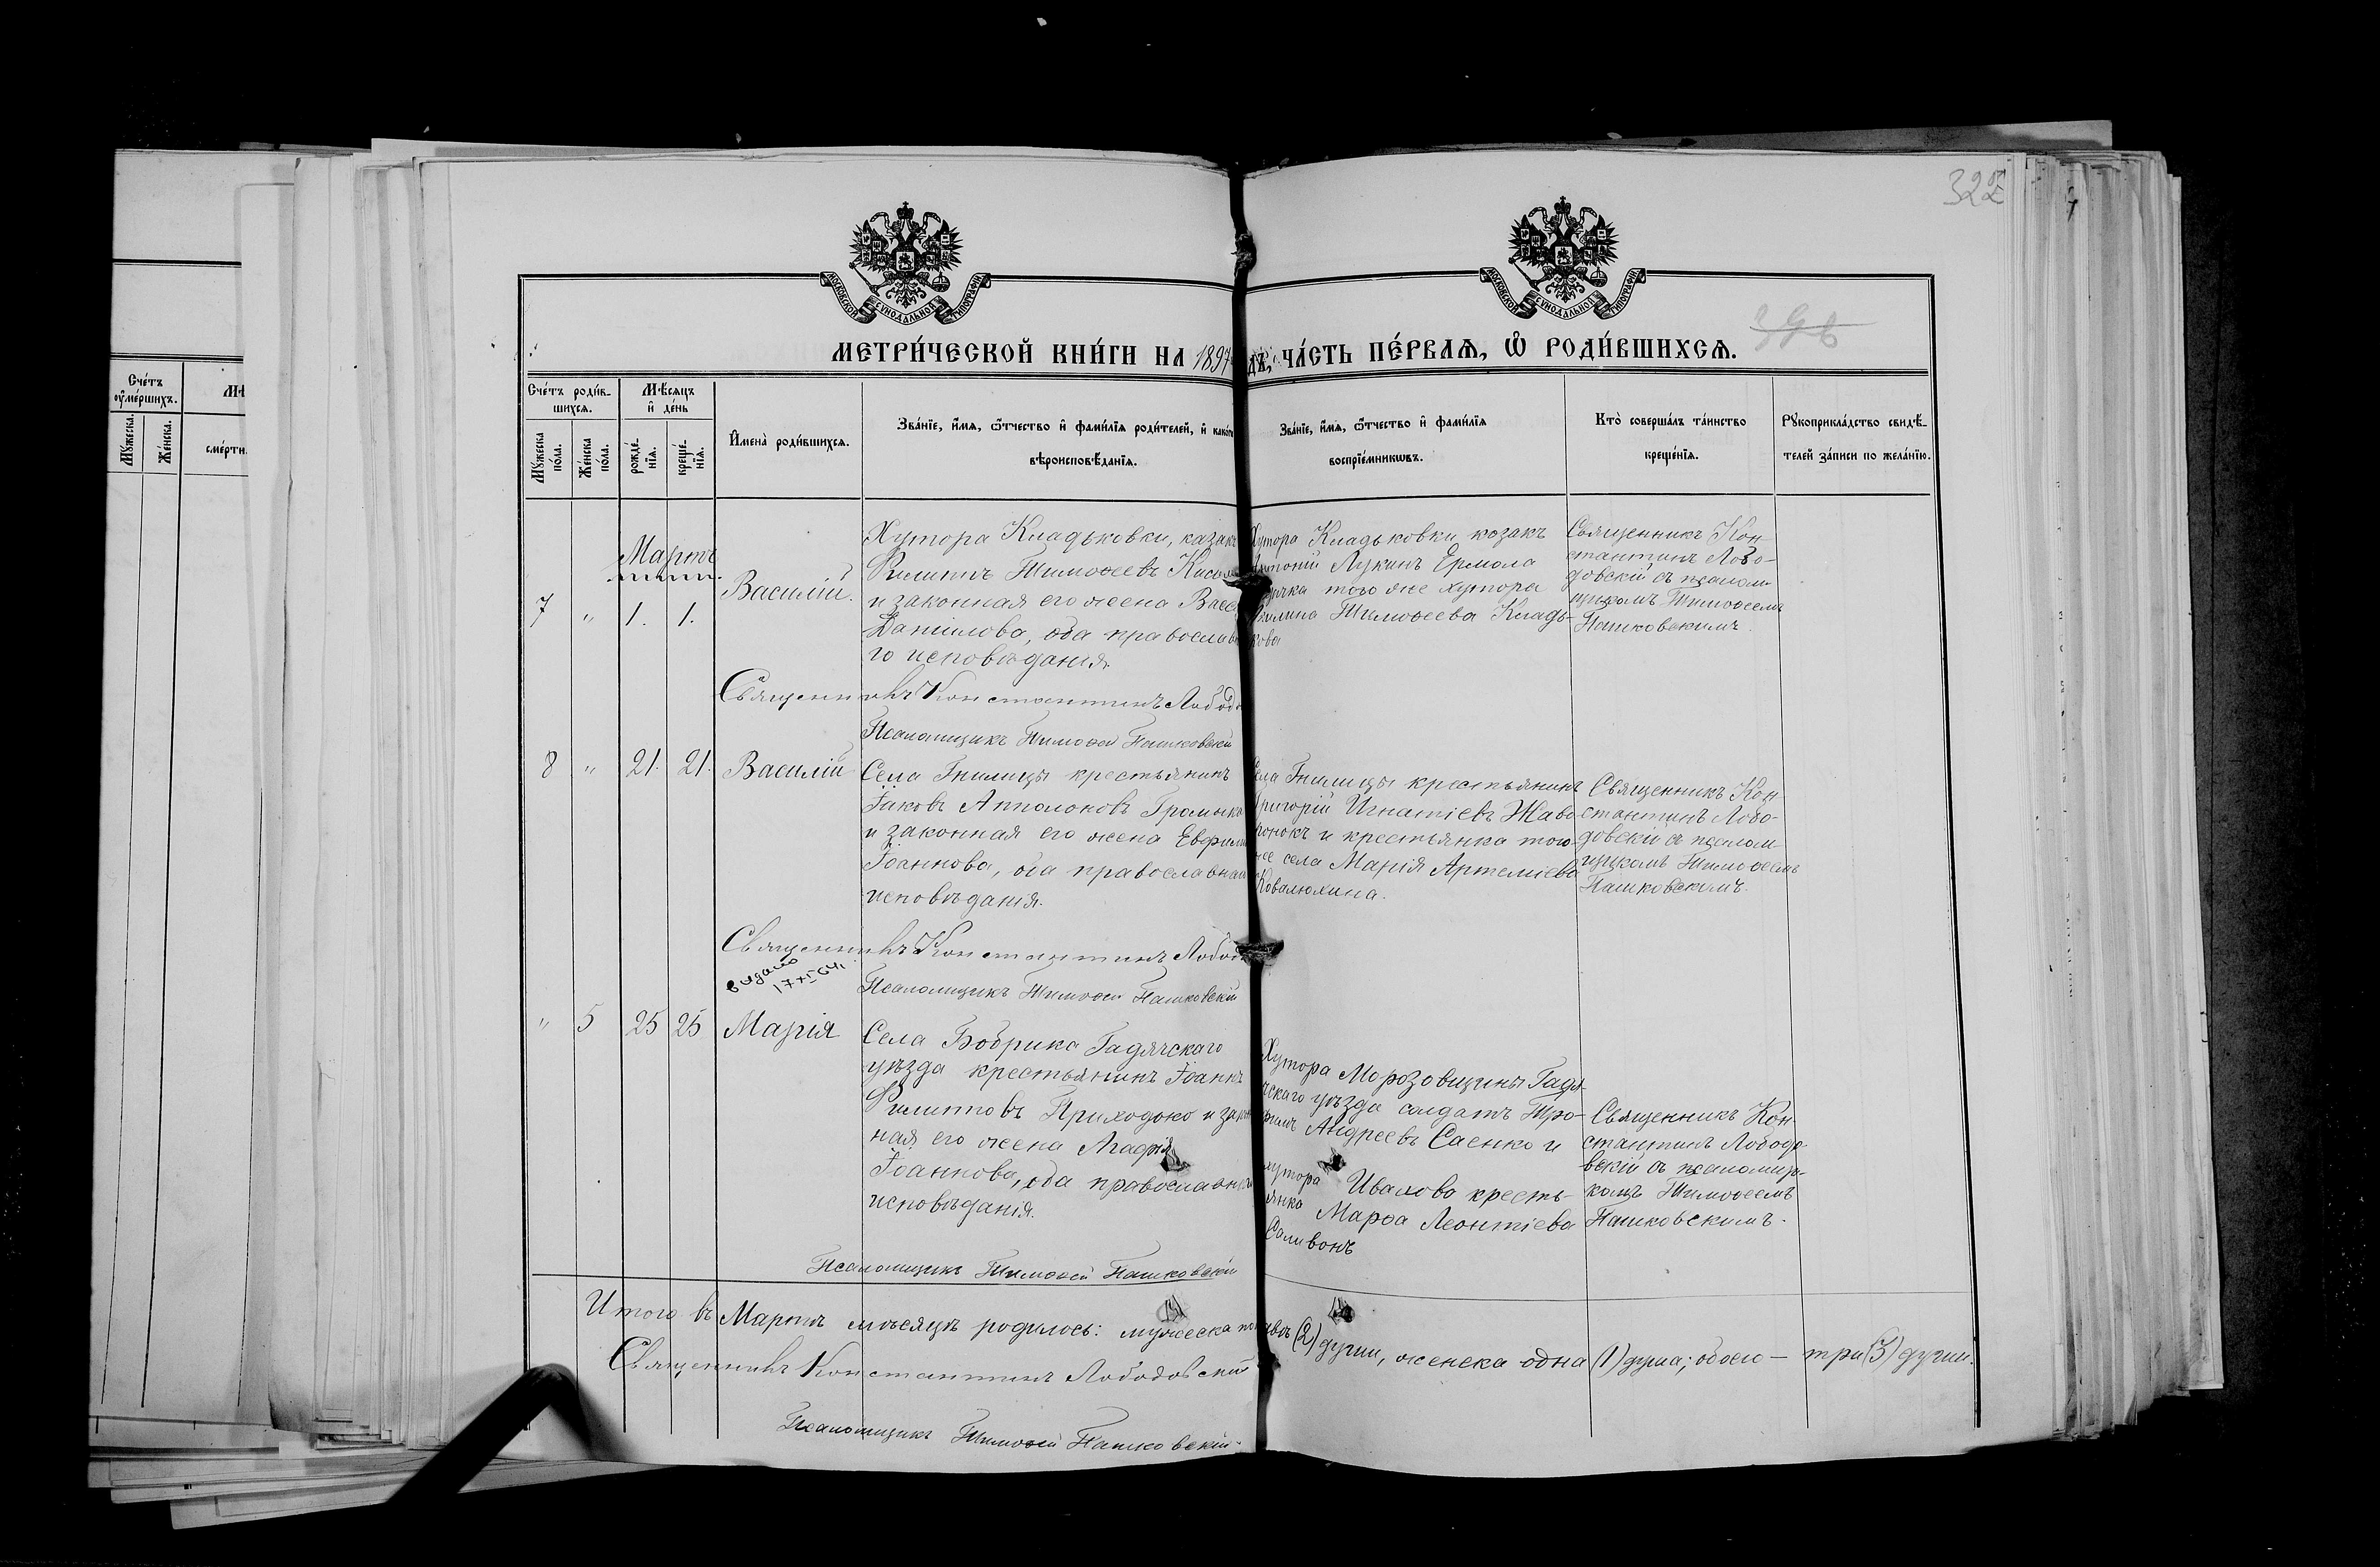 322
МОСКОВСКОЙ СУНОДАЛЬНОЙ ТИПОГРАФІИ
МОСКОВСКОЙ СУНОДАЛЬНОЙ ТИПОГРАФІИ
МЕТРИ́ЧЕСКОЙ КНИ́ГИ НА 1897
ДѢ, ЧА́СТЬ ПЕ́РВАѦ, Ѡ҆ РОДИ́ВШИХСѦ.
Сче́тъ ᲂу҆ме́ршихъ.
Мꙋ́жеска.
Же́нска.
сме́рти.
Сче́тъ роди́в-
шихсѧ.
Мꙋ́жеска по́ла.
Же́нска по́ла.
Мѣ́сѧцъ и҆ де́нь
рожде́-нїѧ.
креще́-нїѧ.
И҆мена̀ роди́вшихсѧ.
Зва́нїе, и҆́мѧ, ѻ҆́тчество и҆ фамі́лїѧ роди́телей, и҆ како́гѡ
вѣроисповѣ́данїѧ.
Зва́нїе, и҆́мѧ, ѻ҆́тчество и҆ фамі́лїѧ
воспрїе́мникѡвъ.
Кто̀ соверша́лъ та́инство
креще́нїѧ.
Рꙋкоприкла́дство свидѣ́-
телей за́писи по жела́нїю.
Мартъ
7 " 1. 1. Василій.
Хутора Кладьковки, казакъ
Филиппъ Тимоѳеевъ
и законная его жена
Даніилова, оба православна
го исповѣданія.
Хутора Кладьковки козакъ
Антоній Лукинъ Ермола
того же хутора
Тимоѳеева Кладь-
кова
Священникъ Кон
стантинъ Лобо-
довскій съ псалом
щикомъ Тимоѳеемъ
Пашковскимъ.
Священникъ Константинъ Лободо
Псаломщикъ Тимоѳей Пашковскій
8 " 21. 21. Василій
Села Гнилицы крестьянинъ
Іаковъ Апполоновъ
и законная его жена
Іоаннова, оба православнаго
исповѣданія.
Села Гнилицы крестьянинъ
Григорій Игнатіевъ Жаво-
ронокъ и крестьянка того
же села Марія Артеміева
Ковалюхина.
Священникъ Кон
стантинъ Лобо-
довскій съ псалом
щикомъ Тимоѳеемъ
Пашковскимъ.
Священникъ Константинъ Лободо
выдано
Псаломщикъ Тимоѳей Пашковскій
" 5 25 25 Марія
Села Бобрика Гадячскаго
уѣзда крестьянинъ Іоаннъ
Филипповъ Приходько и закон
ная его жена Агафія
Іоаннова, оба православнаго
исповѣданія.
Хутора Морозовщины Гадя-
чскаго уѣзда солдатъ Тро-
фимъ Андреевъ Саенко и
хутора Иваново кресть-
янка Марѳа Леонтіева
Саливонъ
Священникъ Кон
стантинъ Лободо
вскій съ псаломщи-
комъ Тимоѳеемъ
Пашковскимъ.
Псаломщикъ Тимоѳей Пашковскій
Итого въ Мартѣ мѣсяцѣ родилось: мужеска пола двѣ (2) души, женска одна (1) душа; обоего — три (3) души.
Священникъ Константинъ Лободовскій
Псаломщикъ Тимоѳей Пашковскій.